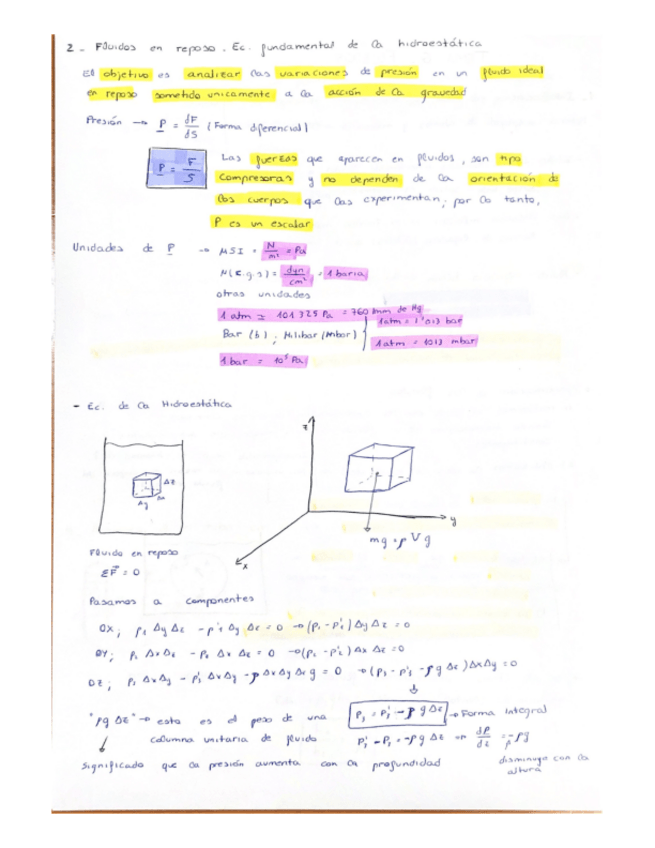 2 - Fluidos en reposo. Ec. fundamental de la hidroestática
El objetivo es analizar las variaciones de presión en un fluido ideal
en reposo sometido unicamente a la acción de la gravedad
Presión → P = dF/dS (Forma diferencial)
P = F/S
Las fuerzas que aparecen en fluidos, son tipo
compresoras y no dependen de la orientación de
los cuerpos que las experimentan; por lo tanto,
P es un escalar
Unidades de P → MSI = N/m² = Pa
N(c.g.s) = dyn/cm² = 1 baria
otras unidades
1 atm ≃ 101 325 Pa = 760 mm de Hg
Bar (b) ; Milibar (mbar) } 1 atm = 1'013 bar
1 atm = 1013 mbar
1 bar = 10⁵ Pa
- Ec. de la Hidroestática
z
Δz
Δy
y
x
mg = ρ V g
Fluido en reposo
ΣF = 0
Pasamos a componentes
OX;
OY;
OZ;
"ρg Δz" → esto es el peso de una
columna unitaria de fluido
→ Forma integral
dP/dz = -ρg
significado que la presión aumenta con la profundidad
disminuye con la
altura